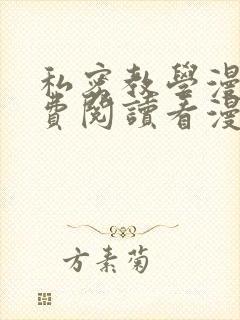 私密教學漫
費閱讀看漫
方素菊